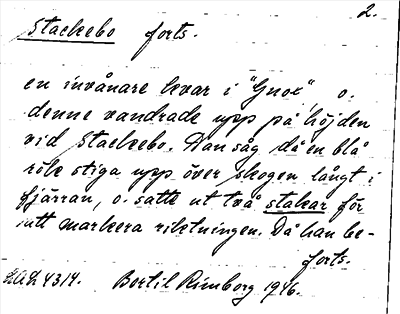 2.
Stackebo forts.
en invånare kvar i "Gnox", o.
denne vandrade upp på höjden
vid Stackebo. Dan såg då en blå
rök stiga upp över skogen långt i
fjärran, o. satte ut två stakar för
att markera riktningen. Då han be-
forts.
4314. Bertil Rimborg 1946.